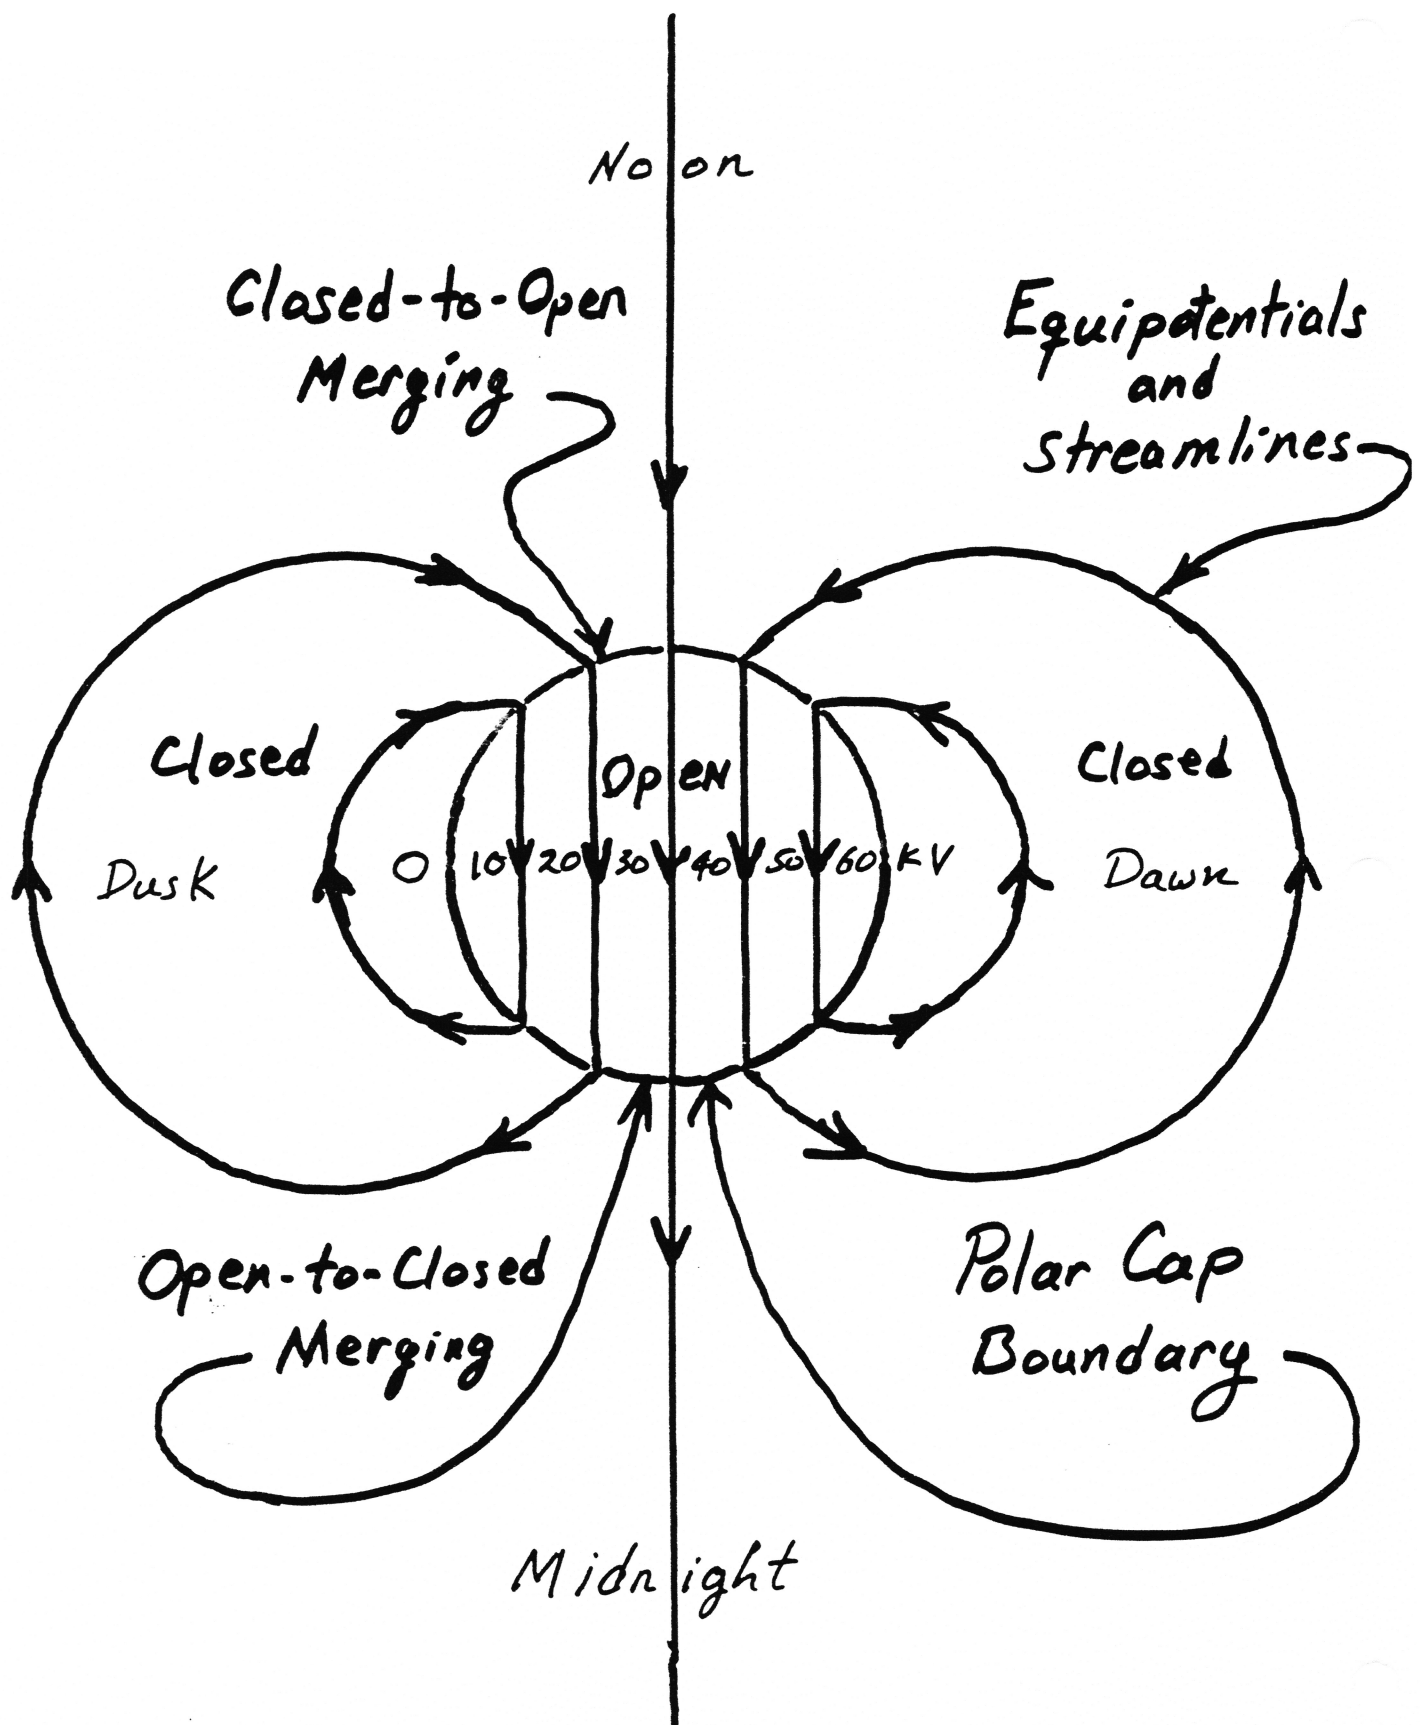 Noon
Closed-to-Open
Merging
Equipotentials
and
Streamlines
Closed
Open
Closed
Dusk
0 10 20 30 40 50 60 KV
Dawn
Open-to-Closed
Merging
Polar Cap
Boundary
Midnight